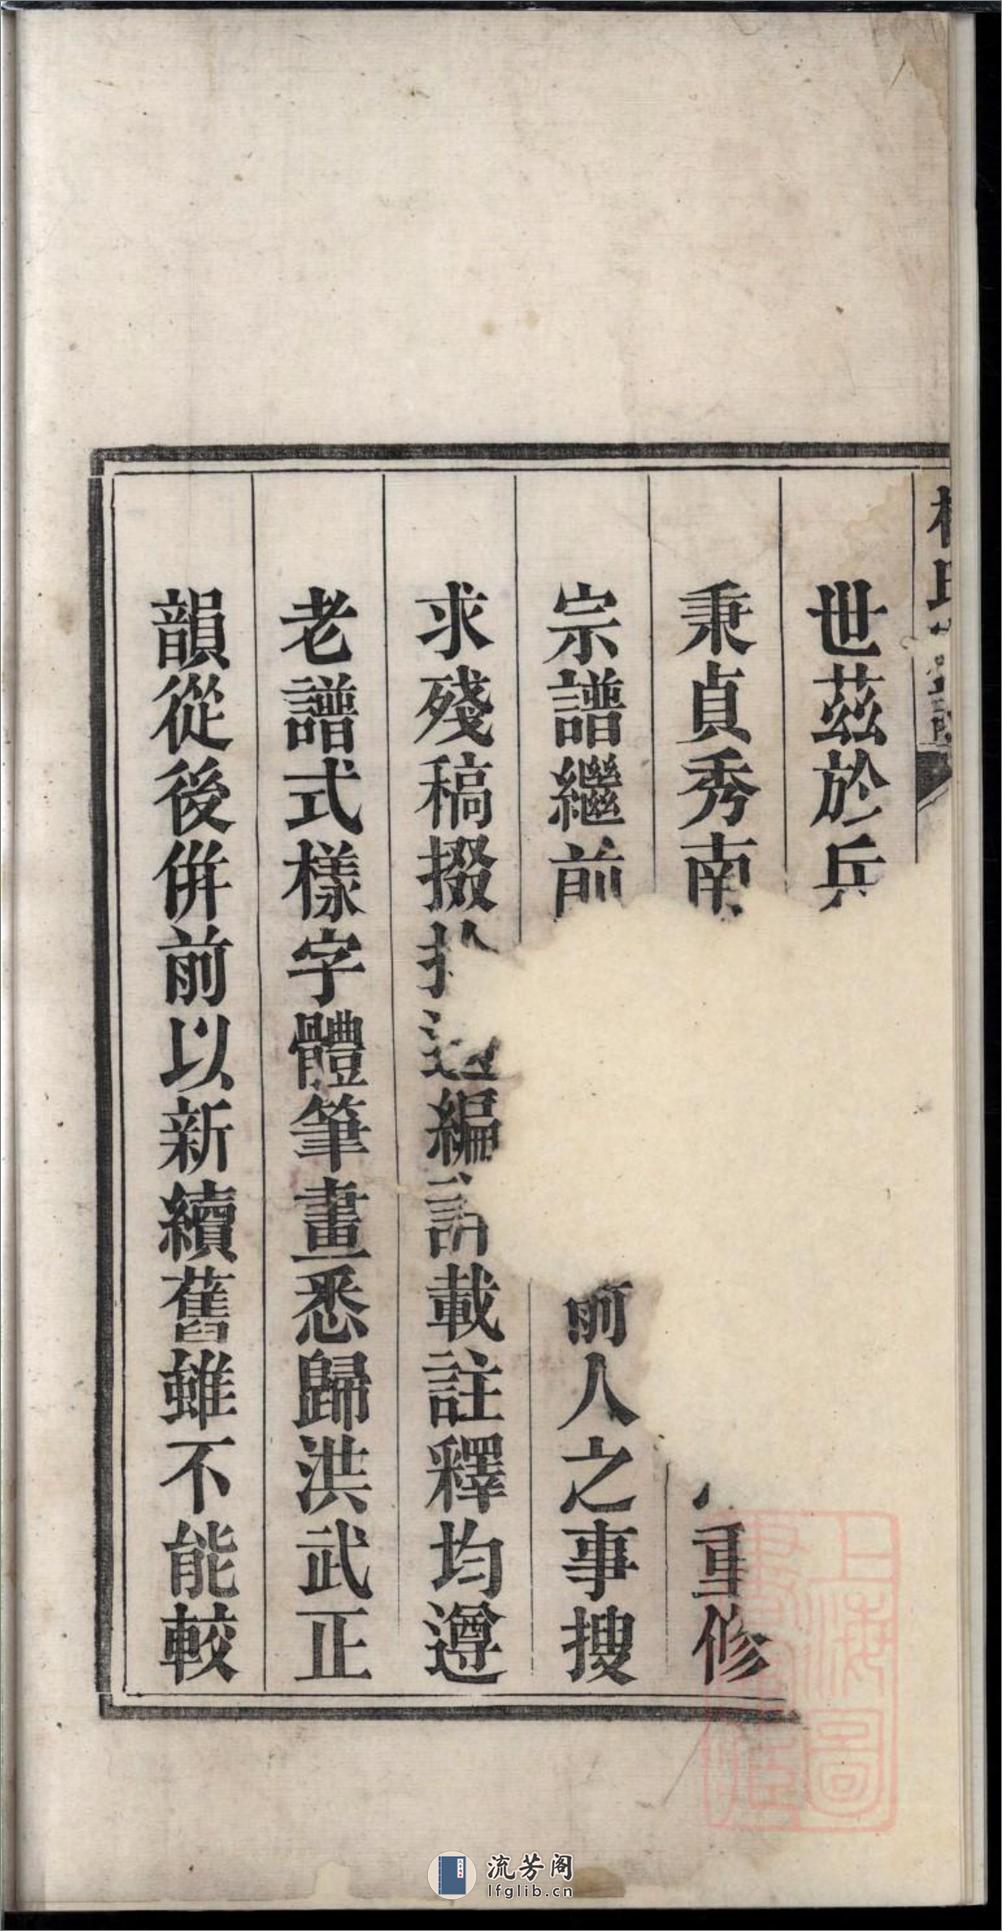 世茲於兵
秉貞秀南
重修
宗譜繼前
前人之事搜
求殘稿掇拾
編
載註釋均遵
老譜式樣字體筆畫悉歸洪武正
韻從後併前以新續舊雖不能較
上海圖
書館藏
流芳阁
lfglib.cn